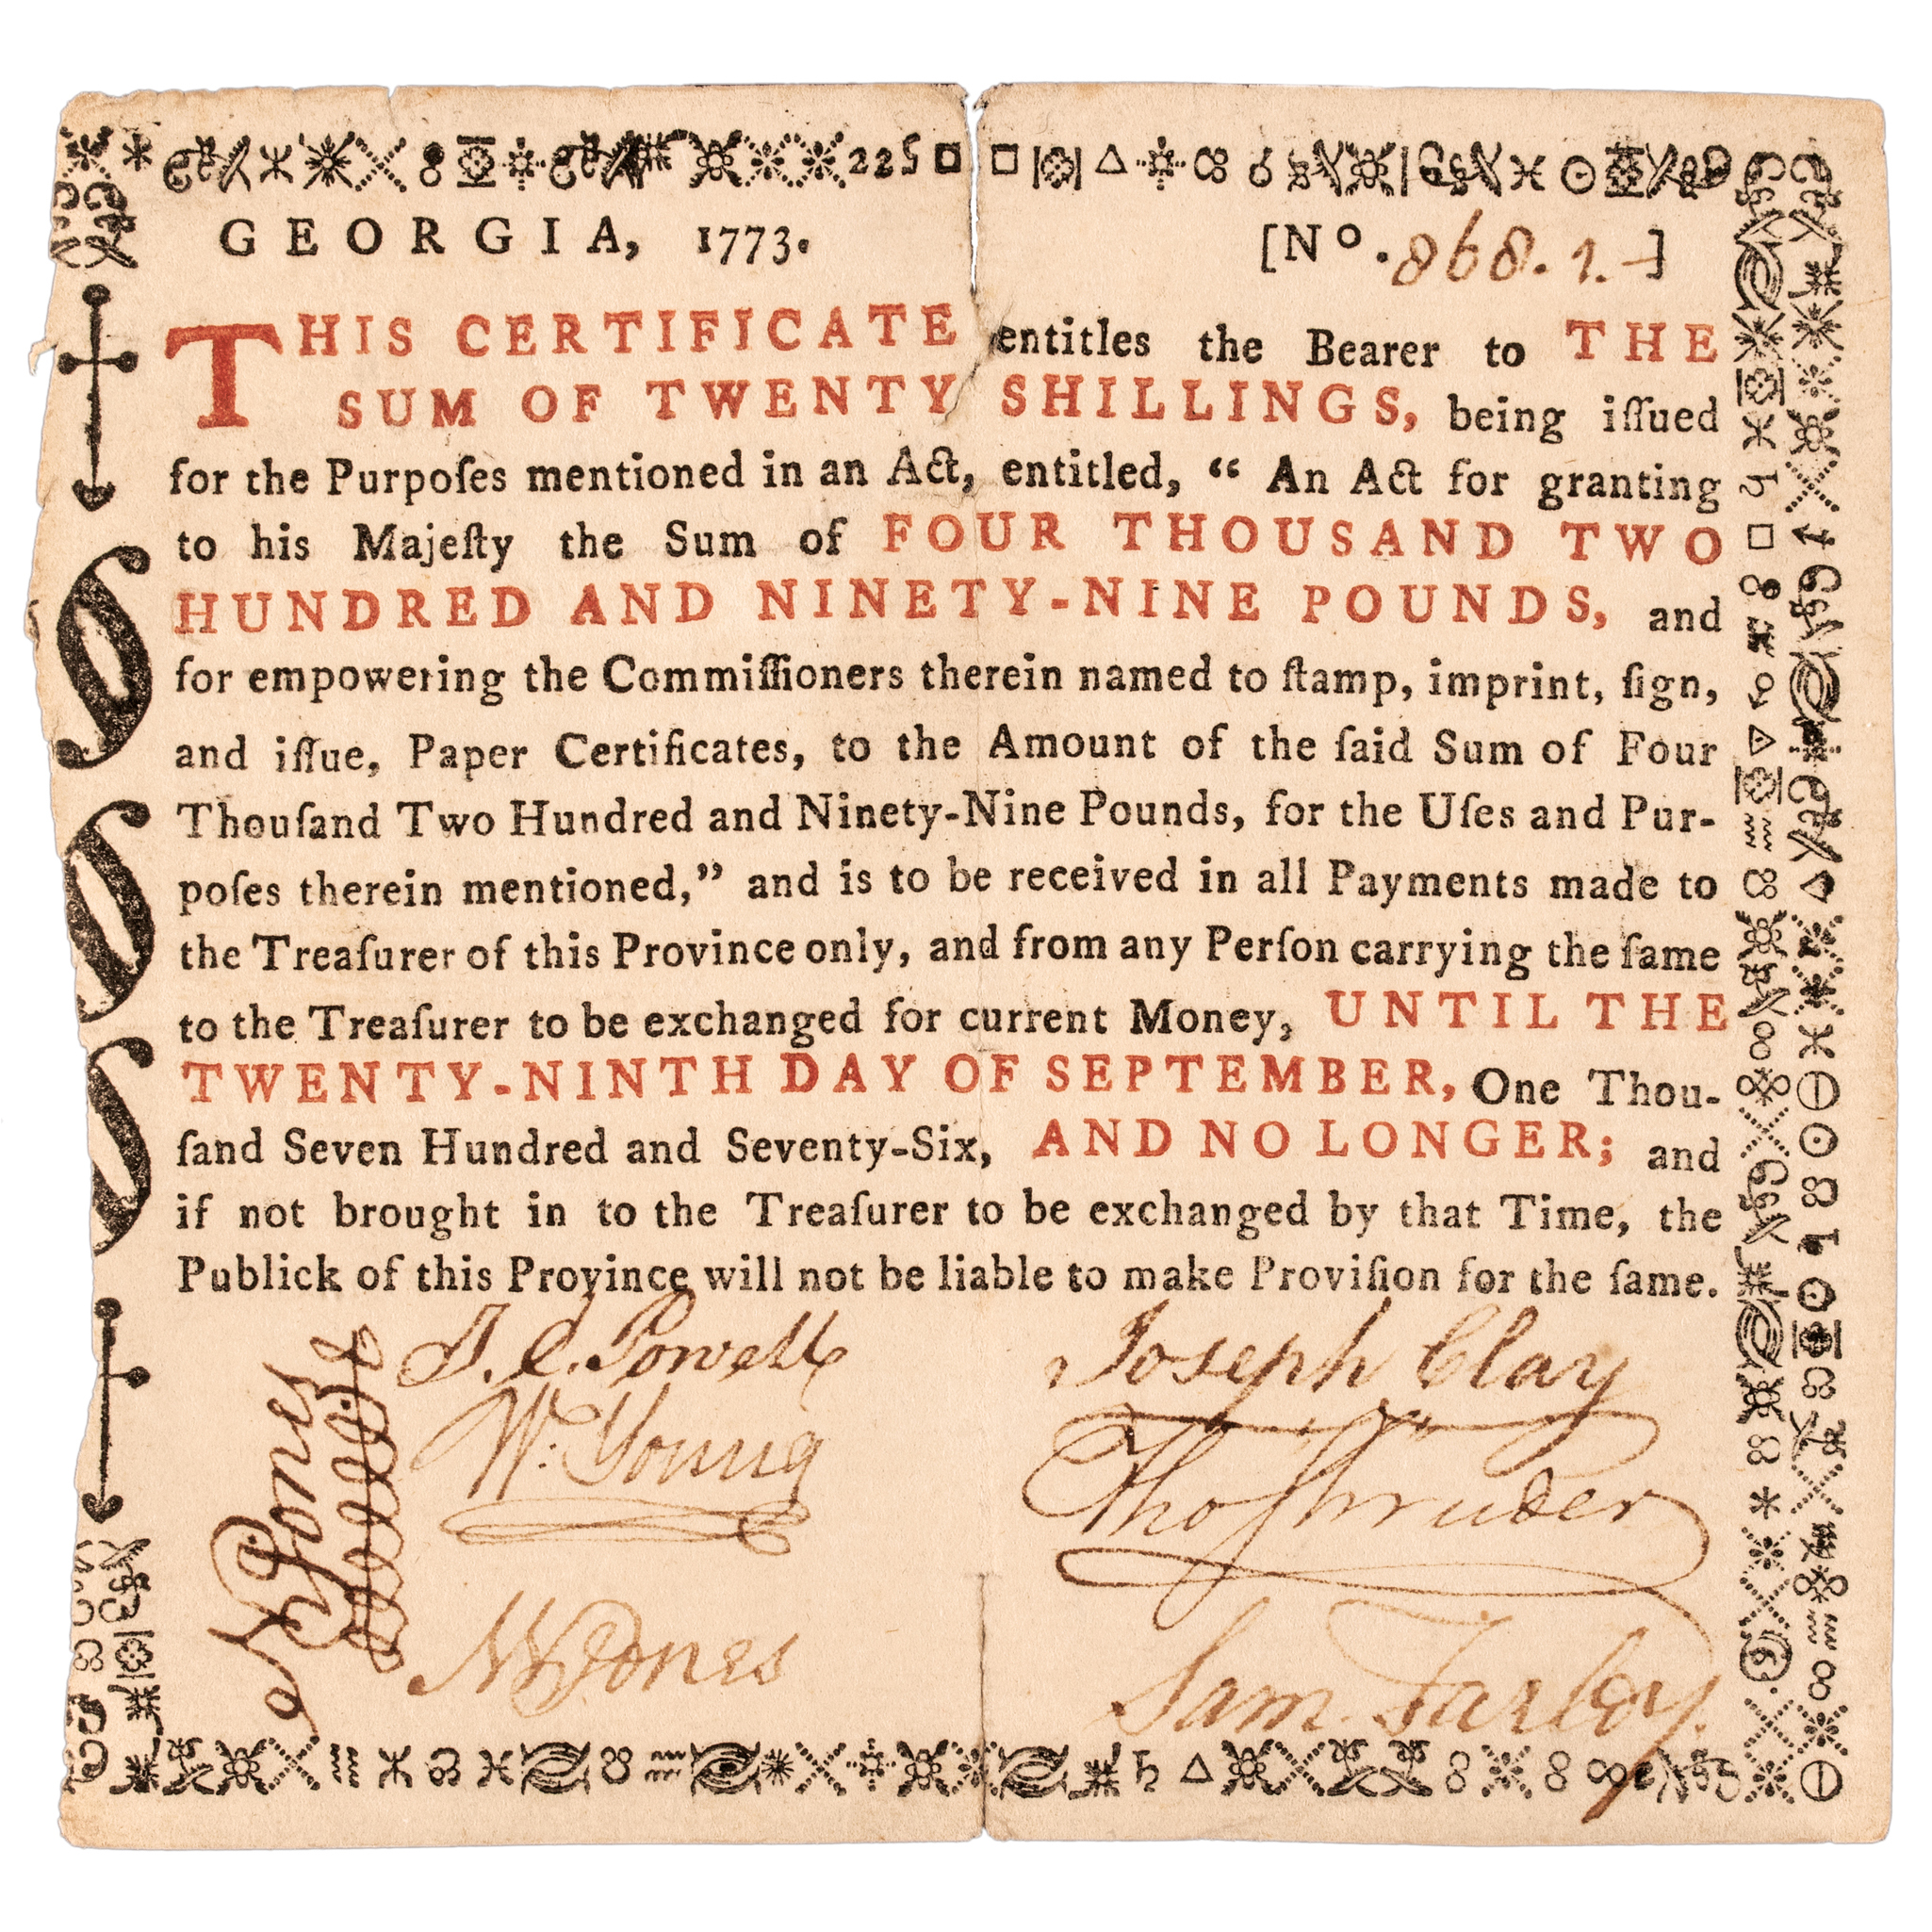 GEORGIA, 1773. [No. 868.1.]
THIS CERTIFICATE entitles the Bearer to THE
SUM OF TWENTY SHILLINGS, being iſſued
for the Purpoſes mentioned in an Act, entitled, “ An Act for granting
to his Majeſty the Sum of FOUR THOUSAND TWO
HUNDRED AND NINETY-NINE POUNDS, and
for empowering the Commiſſioners therein named to ſtamp, imprint, ſign,
and iſſue, Paper Certificates, to the Amount of the ſaid Sum of Four
Thouſand Two Hundred and Ninety-Nine Pounds, for the Uſes and Pur-
poſes therein mentioned,” and is to be received in all Payments made to
the Treaſurer of this Province only, and from any Perſon carrying the ſame
to the Treaſurer to be exchanged for current Money, UNTIL THE
TWENTY-NINTH DAY OF SEPTEMBER, One Thou-
ſand Seven Hundred and Seventy-Six, AND NO LONGER; and
if not brought in to the Treaſurer to be exchanged by that Time, the
Publick of this Province will not be liable to make Proviſion for the ſame.
J. E. Powell Joseph Clay
Wm. Young
N W Jones Sam. Farley.
Jones